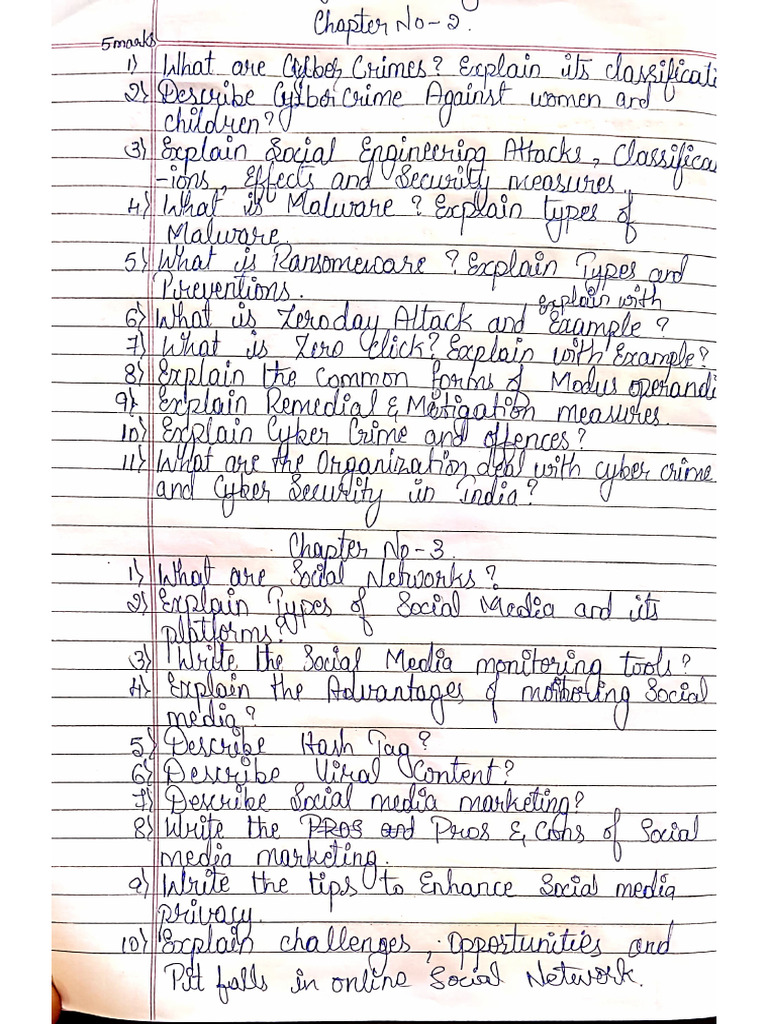 Chapter No-2.
5marks
1) What are Cyber Crimes? Explain its classificati
2) Describe Cyber Crime Against women and
children?
3) Explain Social Engineering Attacks, Classifica
-ions, Effects and Security measures.
4) What is Malware? Explain types of
Malware
5) What is Ransomeware? Explain Types and
Preventions.
explain with
6) What is Zeroday Attack and Example?
7) What is Zero click? Explain with Example?
8) Explain the Common forms of Modus operandi
9) Explain Remedial & Mitigation measures.
10) Explain Cyber Crime and offences?
11) What are the Organization deal with cyber crime
and Cyber Security in India?
Chapter No-3.
1) What are Social Networks?
2) Explain Types of Social Media and its
platforms?
3) Write the Social Media monitoring tools?
4) Explain the Advantages of monitoring Social
media?
5) Describe Hash Tag?
6) Describe Viral Content?
7) Describe Social media marketing?
8) Write the PROS and Pros & Cons of Social
media marketing.
9) Write the tips to Enhance Social media
privacy.
10) Explain challenges, Opportunities and
Pit falls in online Social Network.